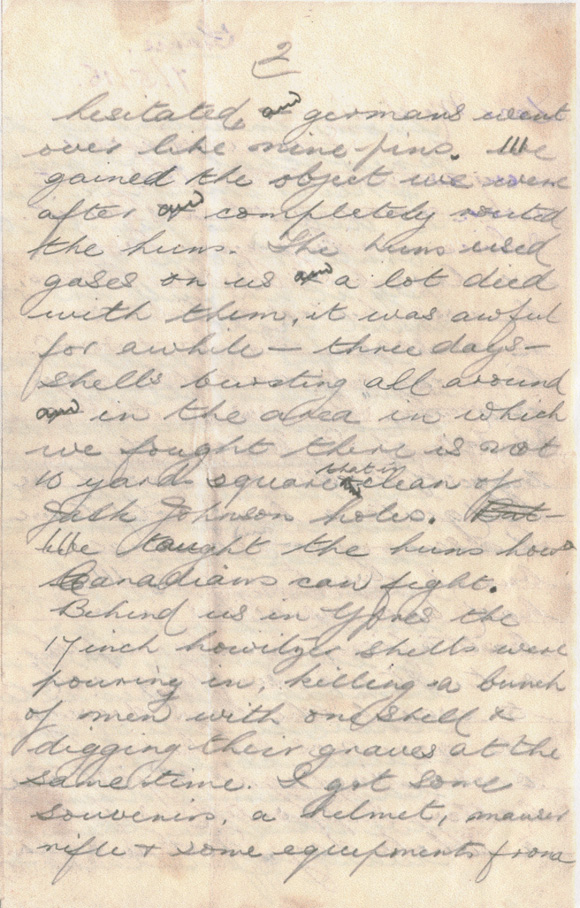 2
hesitated, and germans went
over like nine pins. We
gained the object we were
after and completely routed
the huns. The huns used
gases on us and a lot died
with them, it was awful
for awhile — three days —
shells bursting all around
and in the area in which
we fought there is not
10 yards square that is clean of
Jack Johnson holes. But
We taught the huns how
Canadians can fight.
Behind us in Ypres the
17 inch howitzer shells were
pouring in, killing a bunch
of men with one shell &
digging their graves at the
same time. I got some
souvenirs, a helmet, mauser
rifle & some equipments from a